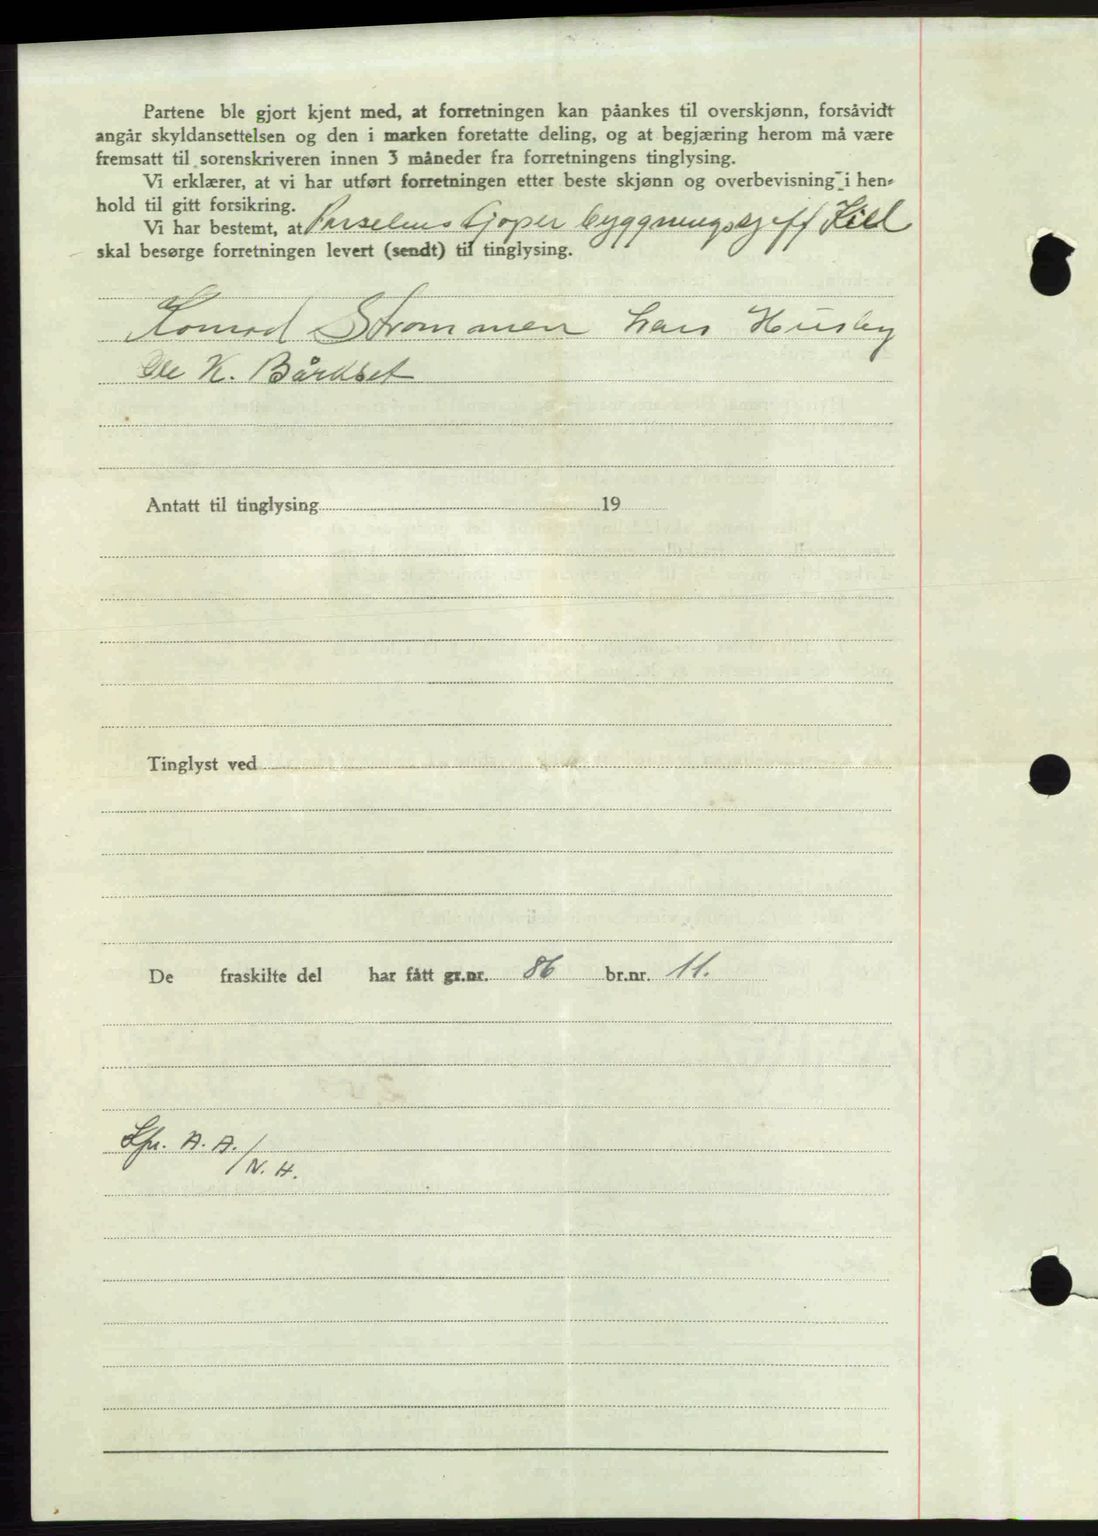 Partene ble gjort kjent med, at forretningen kan påankes til overskjønn, forsåvidt
angår skyldansettelsen og den i marken foretatte deling, og at begjæring herom må være
fremsatt til sorenskriveren innen 3 måneder fra forretningens tinglysing.
Vi erklærer, at vi har utført forretningen etter beste skjønn og overbevisning i hen-
hold til gitt forsikring.
Vi har bestemt, at Parselens kjøper byggningssjeff Kiell
skal besørge forretningen levert (sendt) til tinglysing.
Konrad Strømmen Lars Husby
Ole K. Bårdset
Antatt til tinglysing 19
Tinglyst ved
De fraskilte del har fått gr.nr. 86 br.nr. 11.
Lpr. A. A./
N. H.